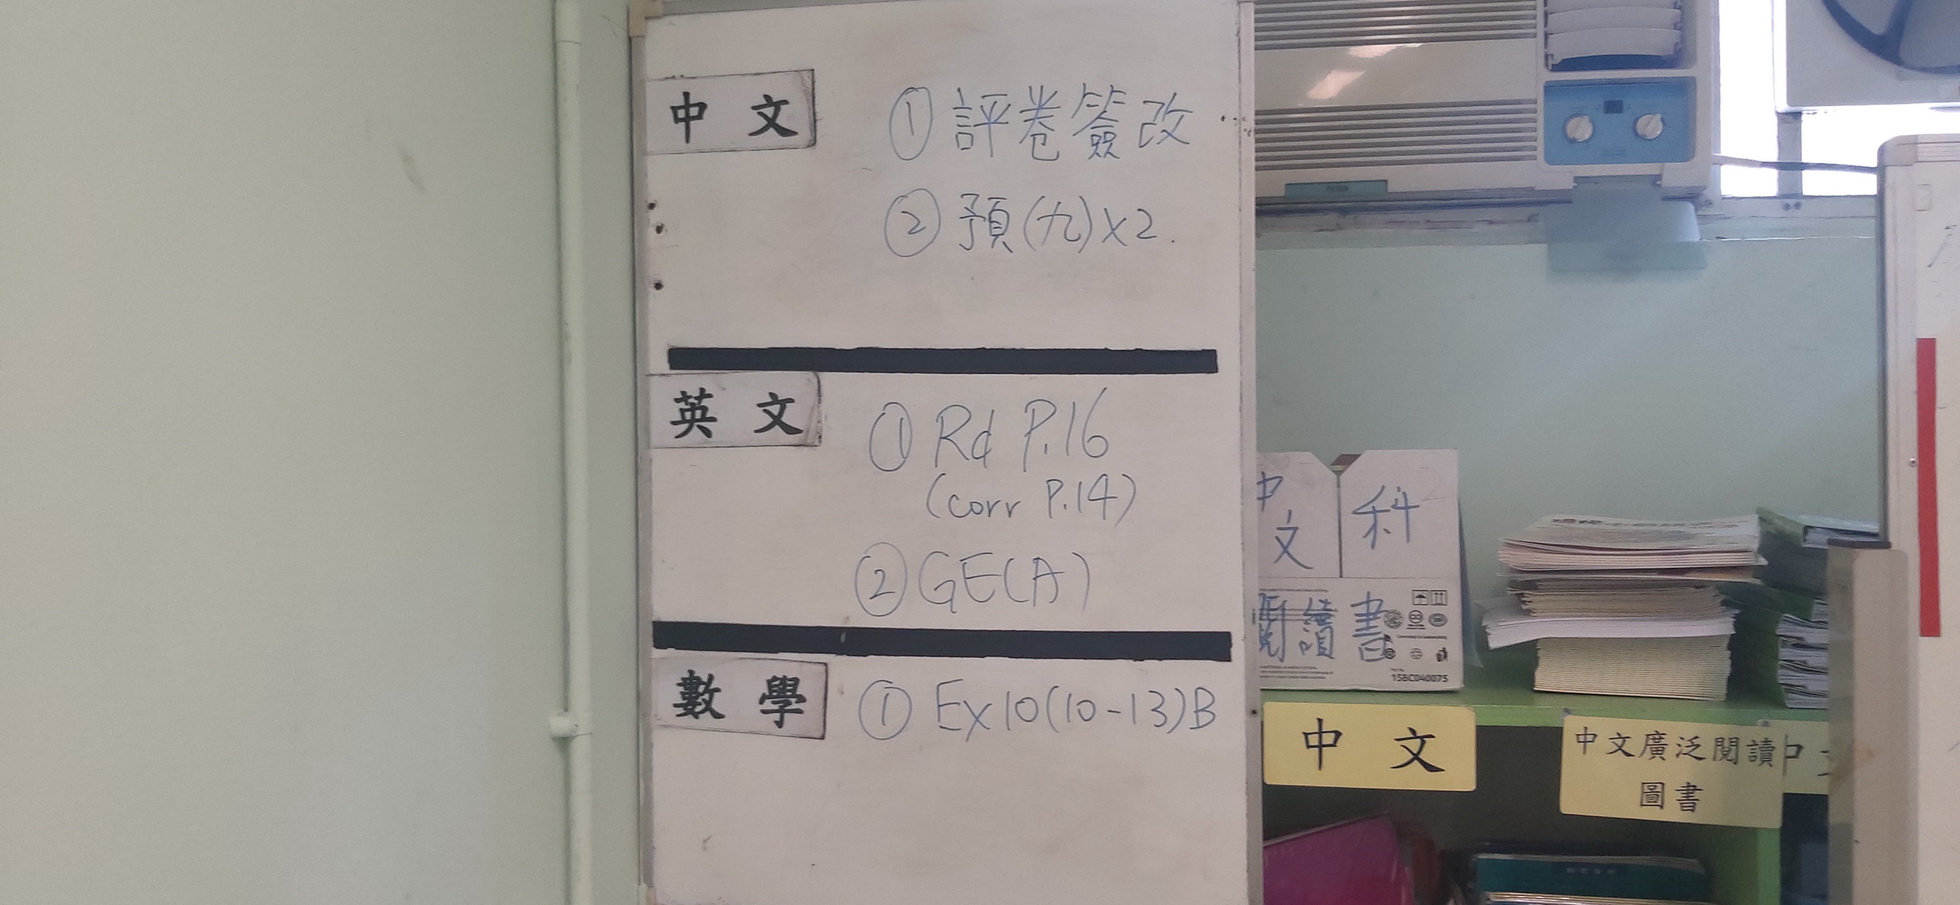 中文
①評卷簽改
②預(九)x2.
英文
①Rd P.16
(corr P.14)
②GE(A)
數學
①Ex10(10-13)B
中文
科
閱讀書
15BC040075
中文
中文廣泛閱讀
圖書
中文